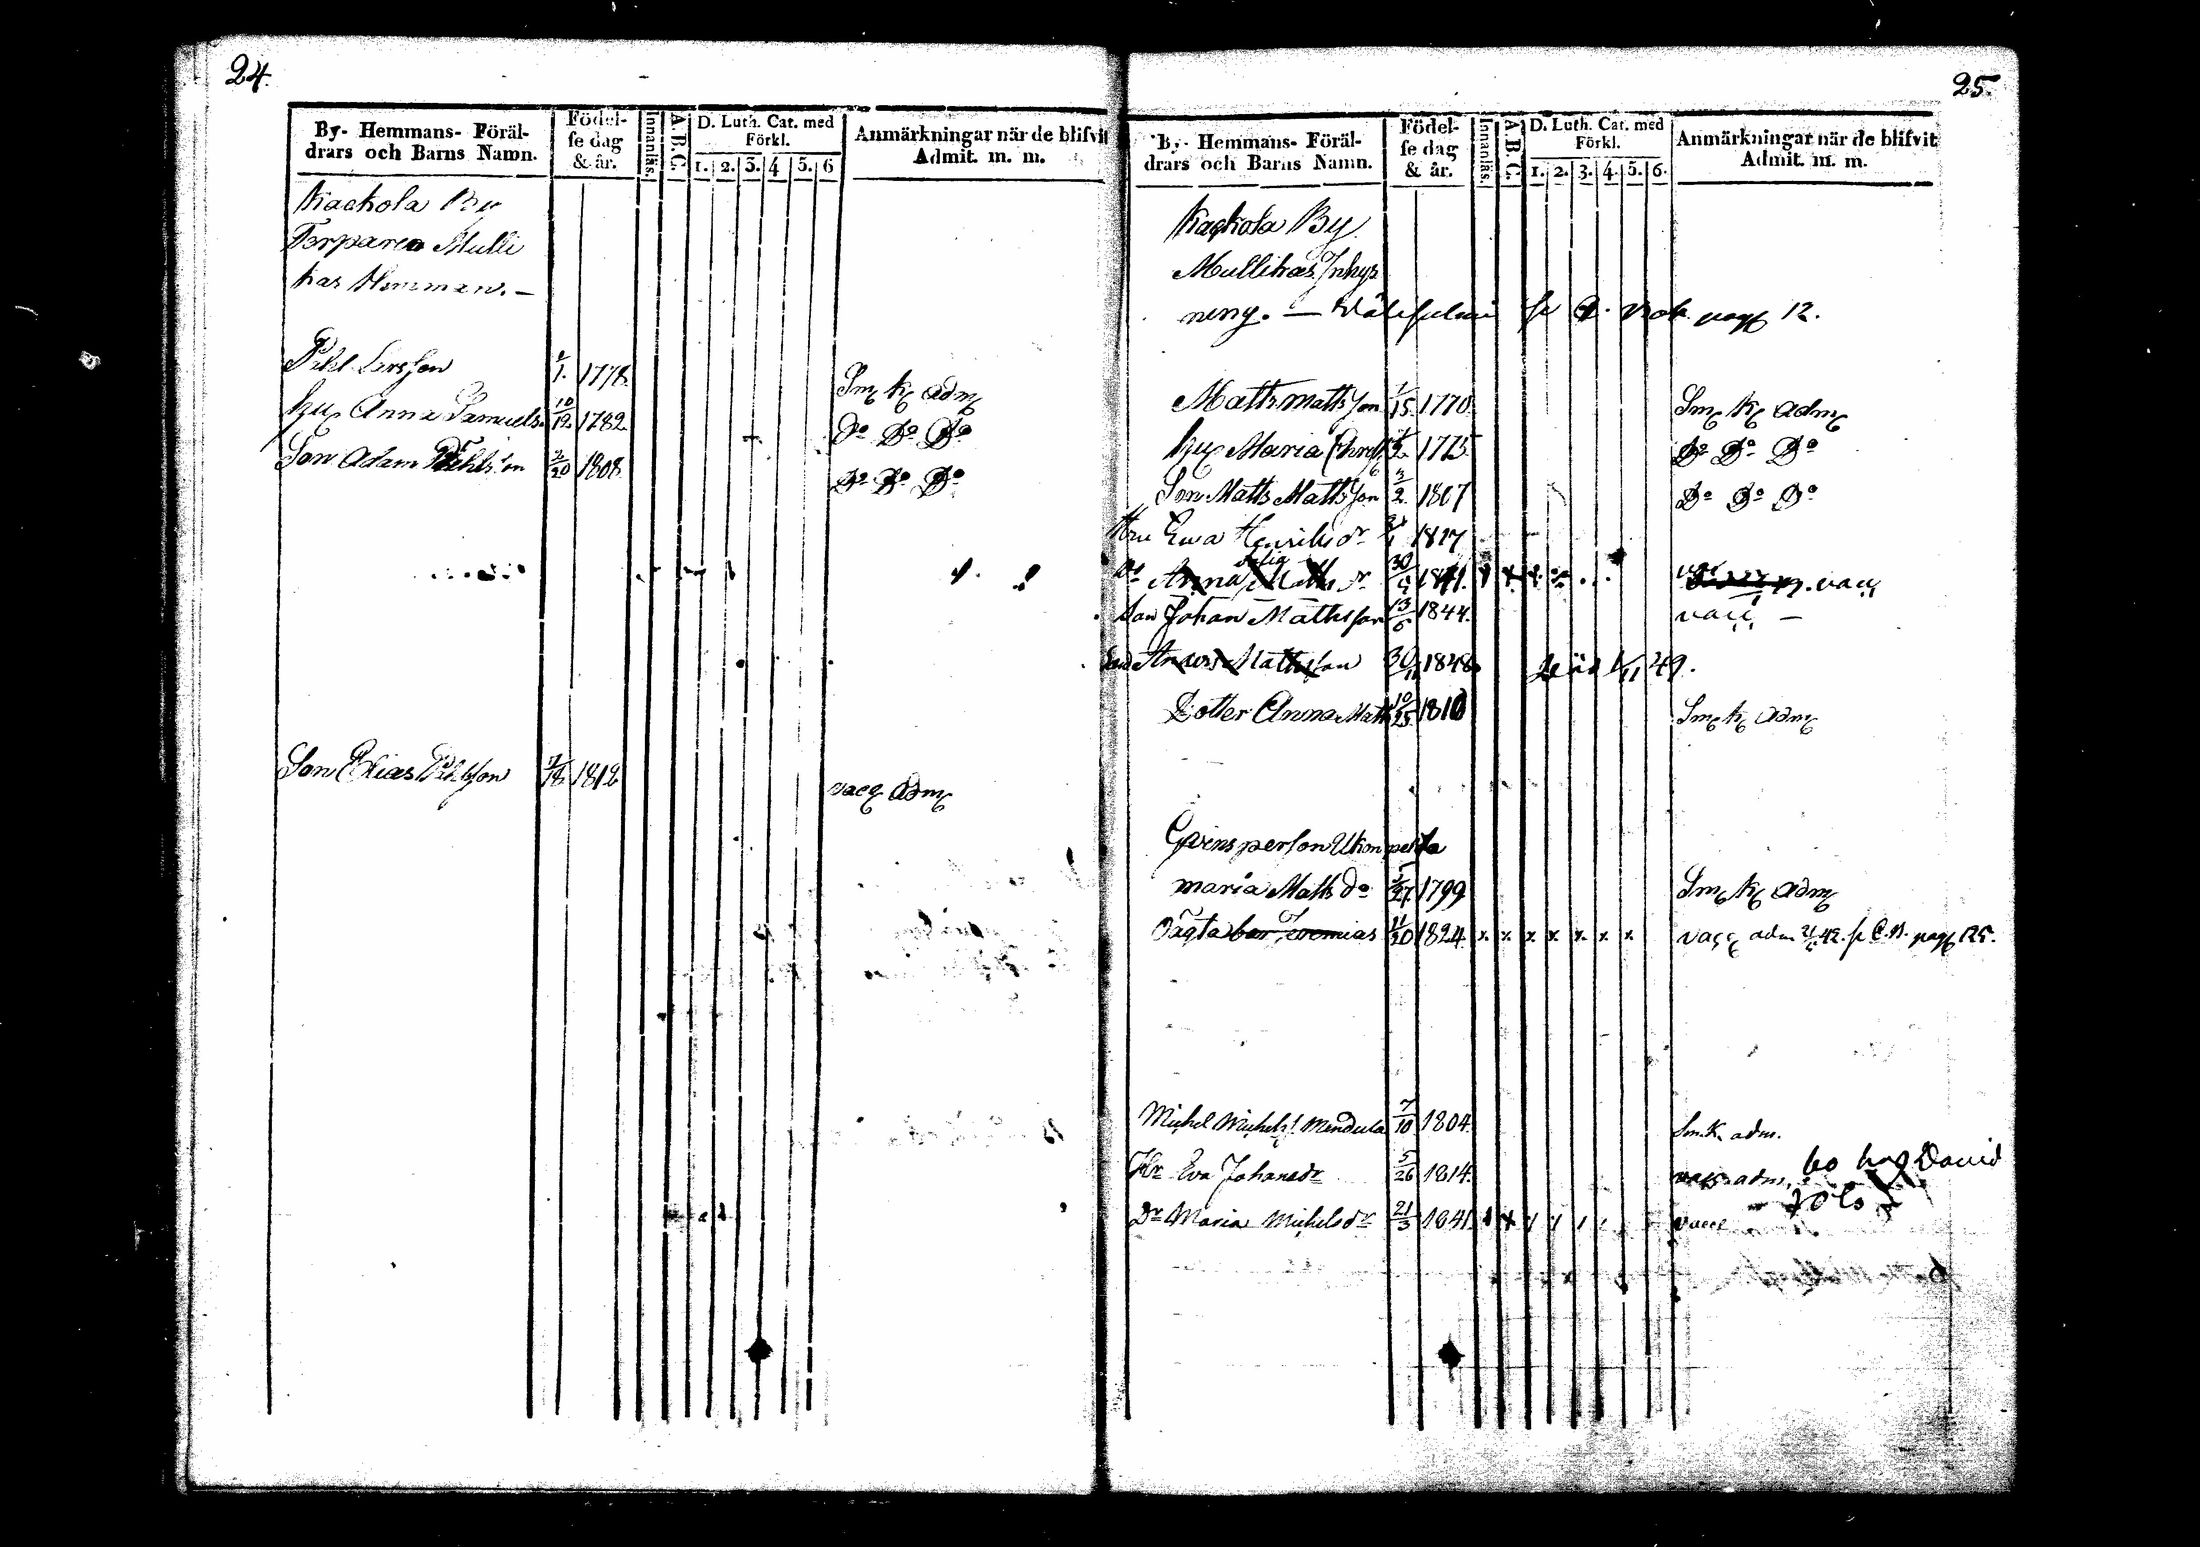 24.
By- Hemmans- Föräl-
drars och Barns Namn.
Födel-
se dag
& år.
Innanläs.
A.B.C.
D. Luth. Cat. med
Förkl.
1. 2. 3. 4 5. 6
Anmärkningar när de blifvit
Admit. m. m.
Kackola By
Torparen Mulli
kas Hemman. —
Pehl Larsson 1778 Sm K adm
hu Anna Samuels. 10/12 1782 Do Do Do
Son Adam Pehlsson 2/20 1808 Do Do Do
Son Elias Pehlsson 1812 vacc adm
25.
By- Hemmans- Föräl-
drars och Barns Namn.
Födel-
se dag
& år.
Innanläs.
A.B.C.
D. Luth. Cat. med
Förkl.
1. 2. 3. 4. 5. 6.
Anmärkningar när de blifvit
Admit. m. m.
Kackola By
Mullikas Inhys
ning. — pag 12.
Matts Mattsson 1/15 1770 Sm K adm
hu Maria 1775 Do Do Do
Son Matts Mattsson 3/2 1807 Do Do Do
Hu Ewa Henriksdr 1817
Dr Anna Mattsdr 30/4 1841. vacc
Son Johan Mattsson 13/6 1844. vacc —
Mattsson 30/11 1848 död 1/11 49.
Dotter Anna Matts 10/25 1810 Sm K adm
Qvinsperson
Maria Matts do 1/27 1799 Sm K adm
Oägta bar Jeremias 11/20 1824 x x x x x x x vacc adm 42. se C.B. pag 125.
Michel Michels. Mendula 7/10 1804. Sm. K. adm.
Hr Eva Johansdr 5/26 1814. vacc adm. bo hos David
Dr Maria Michelsdr 21/3 1841 vacc